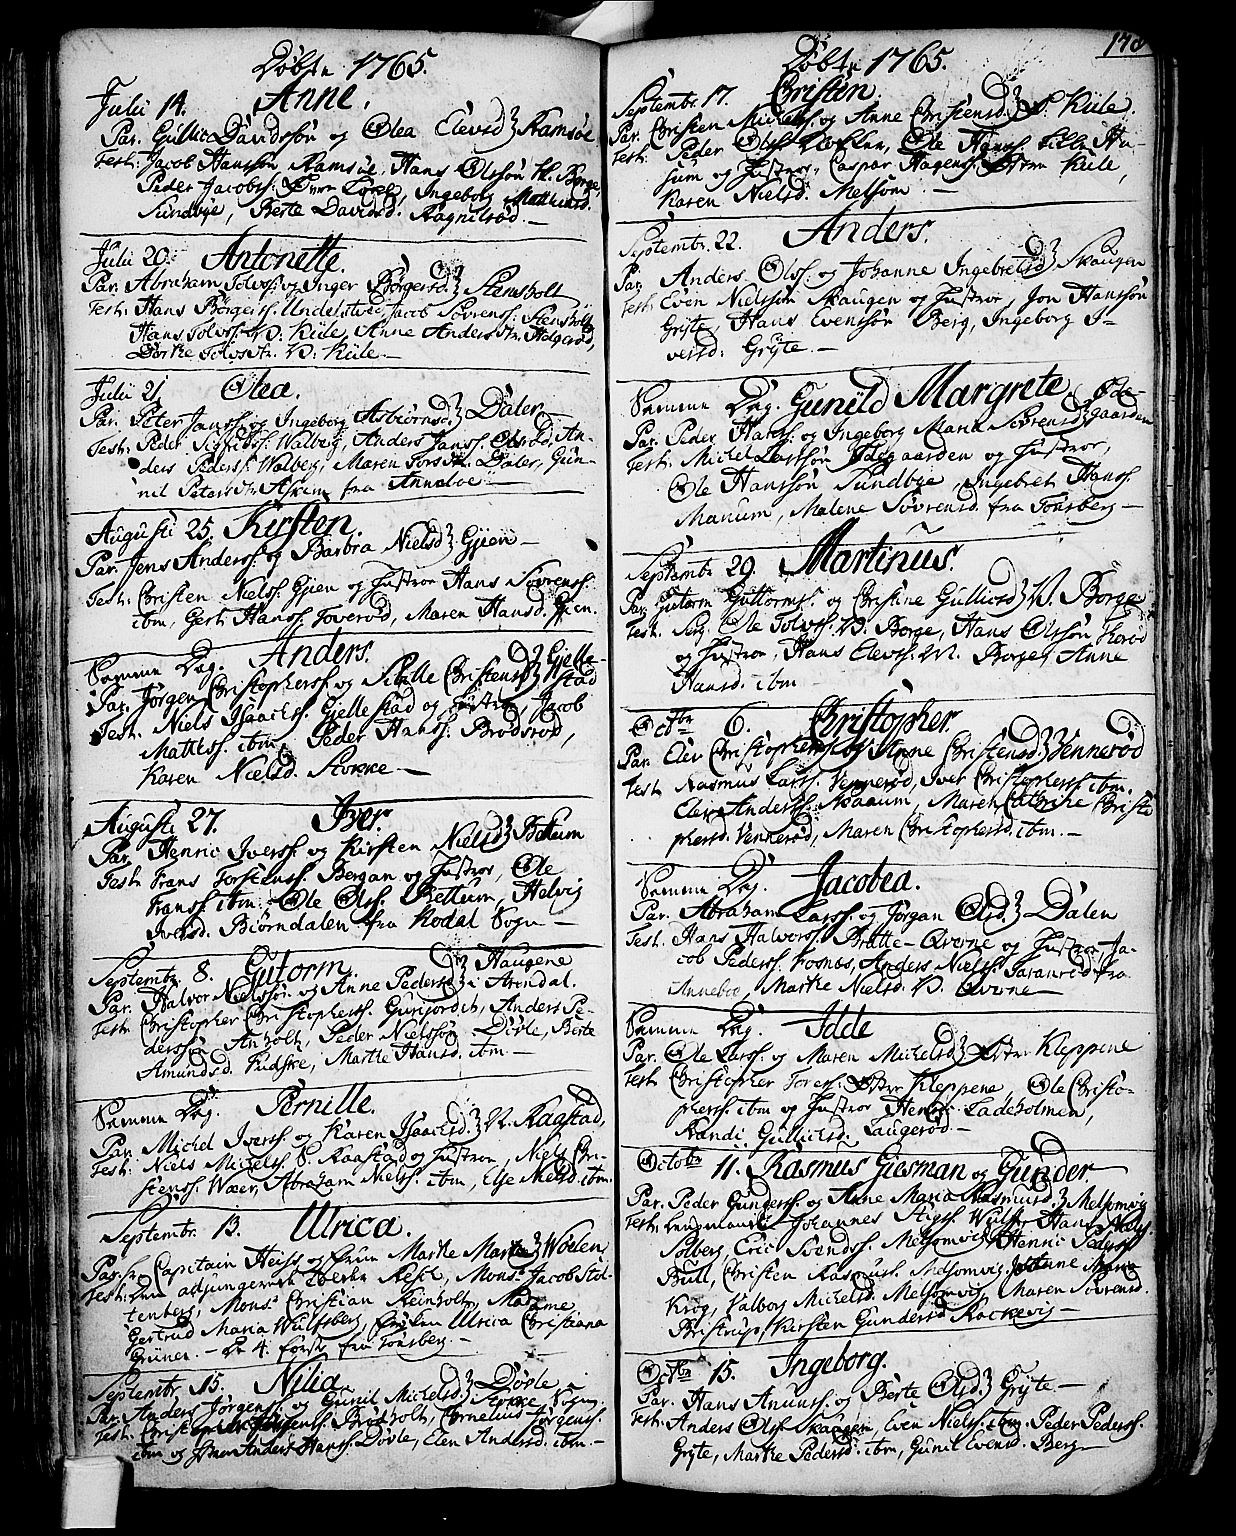 Døbte 1765.
Julii 14. Anne.
Par. Gullic Davidssøn og Olea Elevsd. Ramsøe
Test: Jacob Hanssøn Ramsøe, Hans Olssøn N. Borge,
Peder Jacobss. Løveb, Ingeborg Mathiasd.
Sundbye, Berte Davidsd. Ragnilrød. —
Julii 20. Antonette.
Par. Abraham Tolvss. og Inger Børgersd. Stensholt
Test: Hans Børgerss. Undelstved, Jacob Søvrenss. Stensholt
Hans Tolvss. V: Kiile, Anne Andersdtr. Holgerød,
Dorthe Tolvsdtr. V: Kiile. —
Julii 21 Olea.
Par. Peter Janss. og Ingeborg Asbiørnsd. Daler —
Test: Peder Walberg, Anders Janss. An-
ders Pederss. Walberg, Maren Torsdtr. Daler, Gun-
nil Petersdtr. Askim fra Anneboe. —
Augusti 25. Kirsten.
Par. Jens Anderss. og Barbra Nielsd. Gjien —
Test: Christen Nielss. Gjien og Hustroe Hans Søvrenss.
ibm, Gert Hanss. Toverød, Maren Hansd. Gjien.
Samme Dag. Anders.
Par. Jørgen Christopherss. og Sibille Christensd. Gjelle-
stad
Test. Niels Isaachss. Gjellestad og Hustroe, Jacob
Mathiss. ibm. Peder Hanss. Brødsrød,
Karen Nielsd. Stokke —
Augusti 27. Iver.
Par. Henric Iverss. og Kirsten Nielsd. Bettum
Test: Frans Torstenss. Bergan og Hustroe, Ole
Franss. ibm. Ole Olss. Bettum, Helvig
Iversd. Biørndalen fra Kodal Sogn —
Septembr. 8. Gutorm. Haugene
Par. Halvor Nielssøn og Anne Pedersd. i Arendal.
Test: Christopher Christopherss. Gunjordet, Anders Pe-
derssøn Anholt, Peder Nielssøn Døvle, Berte
Amundsd. Fudske, Marthe Hansd. ibm. —
Samme Dag. Pernille.
Par. Michel Iverss. og Karen Isaachsd. N. Raastad,
Test: Niels Michelss. S. Raastad og Hustroe, Niels Chri-
stenss. Wæer, Abraham Nielss. ibm, Else Nielsd. ibm.
Septembr. 13. Ulrica.
Par. Hr. Capitain Heiss og Frue Marthe Marie Woelen
Test: Den adjungerede Resl, Mons. Jacob Stol-
tenberg, Mons. Christian Reinholt, Madame
Gertrud Maria Wulfsberg, Frøken Ulrica Christiana
Grüner. — De 4. første fra Tønsberg. —
Septembr. 15. Nilia Døvle i
Par. Anders Jørgenss. og Gunil Michelsd. Stokke Sogn
Test: Christen Brødholt, Cornelius Jørgenss.
ibm og Anders Hanss. Døvle, Elen Andersd. ibm. —
178
Døbte 1765.
Septembr. 17. Christen.
Par. Christen Michelss. og Anne Christensd. S. Kiile.
Test: Peder Olss. Ole Hanss. Lille Hu-
sum og Hustroe, Caspar Hagenss. Østre Kiile,
Karen Nielsd. Melsom —
Septembr. 22. Anders.
Par. Anders Olss. og Johanne Ingebretsd. Skaugen
Test: Even Nielssøn Skaugen og Hustroe, Jon Hanssøn
Gryte, Hans Evenssøn Berg, Ingeborg I-
versd: Gryte. —
Samme Dag. Gunild Margrete. Ode-
Par. Peder Hanss. og Ingeborg Maria Søvrensd. gaarden
Test: Michel Larssøn Ødegaarden og Hustroe,
Ole Hanssøn Sundbye, Ingebret Hanss.
Manum, Malene Søvrensd. fra Tønsberg —
Septembr. 29. Martinus.
Par. Gutorm Guttormss. og Christine Gullicsd. V. Borge
Test. Ole Tolvss. V. Borge, Hans Olssøn
og Hustroe, Hans Elevss. V. Borge, Anne
Hansd. ibm —
Octobr. 6. Christopher.
Par. Elev Christopherss. og Anne Christensd. Vennerød
Test: Rasmus Larss. Vennerød, Iver Christopherss. ibm.
Elev Anderss. Skaaum, Maren Cathrine Christo
phersd. Vennerød, Maren Christophersd. ibm. —
Samme Dag. Jacobea.
Par. Abraham Larss. og Jørgan Olsd. Dalen
Test. Hans Halvorss. Bratte-Qverne og Hustroe, Ja-
cob Pederss. Fosnes, Anders Nielss. fra
Anneboe, Marthe Nielsd. V. Qverne —
Samme Dag. Idde
Par. Ole Larss. og Maren Michelsd. Østre Kleppene
Test: Christopher Toress. Østre Kleppene, Ole Christo-
pherss. ibm og Hustroe Ladeholmen,
Randi Gullichsd. Laugerød —
Octobr. 11. Rasmus Giesman og Gunder.
Par. Peder Gunderss. og Anne Maria Rasmusd. Melsomvig
Test: Johannes Stigss. Wulfsb. Hans Nielss.
Solberg, Eric Svendss. Melsomvig, Henric Pederss.
Bull, Christen Rasmuss. Melsomvig, Anne Maria
Krog, Valborg Michelsd. Melsomvig, Maren Søvrensd.
Bristrup, Kirsten Gundersd. Rackevig —
Octobr. 15. Ingeborg.
Par. Hans Anunss. og Berte Olsd. Gryte. —
Test: Anders Olss. Skaugen, Even Nielss. ibm. Peder Pederss.
Gryte, Marthe Pedersd. ibm, Gunil Evensd. Berg —